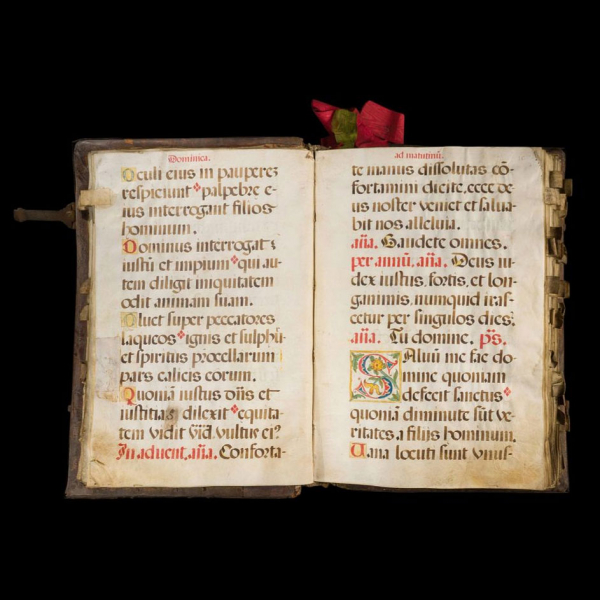 Dominica.
Oculi eius in pauperez
respiciunt palpebre e-
ius interrogant filios
hominum.
Dominus interrogat
iustū et impium qui au-
tem diligit iniquitatem
odit animam suam.
Pluet super peccatores
laqueos ignis et sulphu
et spiritus procellarum
pars calicis eorum.
Quoniā iustus dn̄s et
iustitias dilexit equita-
tem vidit vultus ei?
In aduent. an̄a. Conforta-
ad matutinū.
te manus dissolutas cō-
fortamini dicite, ecce de-
us noster veniet et salua-
bit nos alleluia.
an̄a. Gaudete omnes.
per annū. an̄a. Deus iu-
dex iustus, fortis, et lon-
ganimis, numquid iras-
cetur per singulos dies.
an̄a. Tu domine. ps̄.
Saluū me fac do-
mine quoniam
defecit sanctus
quoniā diminute sūt ve-
ritates, a filiis hominum.
Uana locuti sunt vnus-